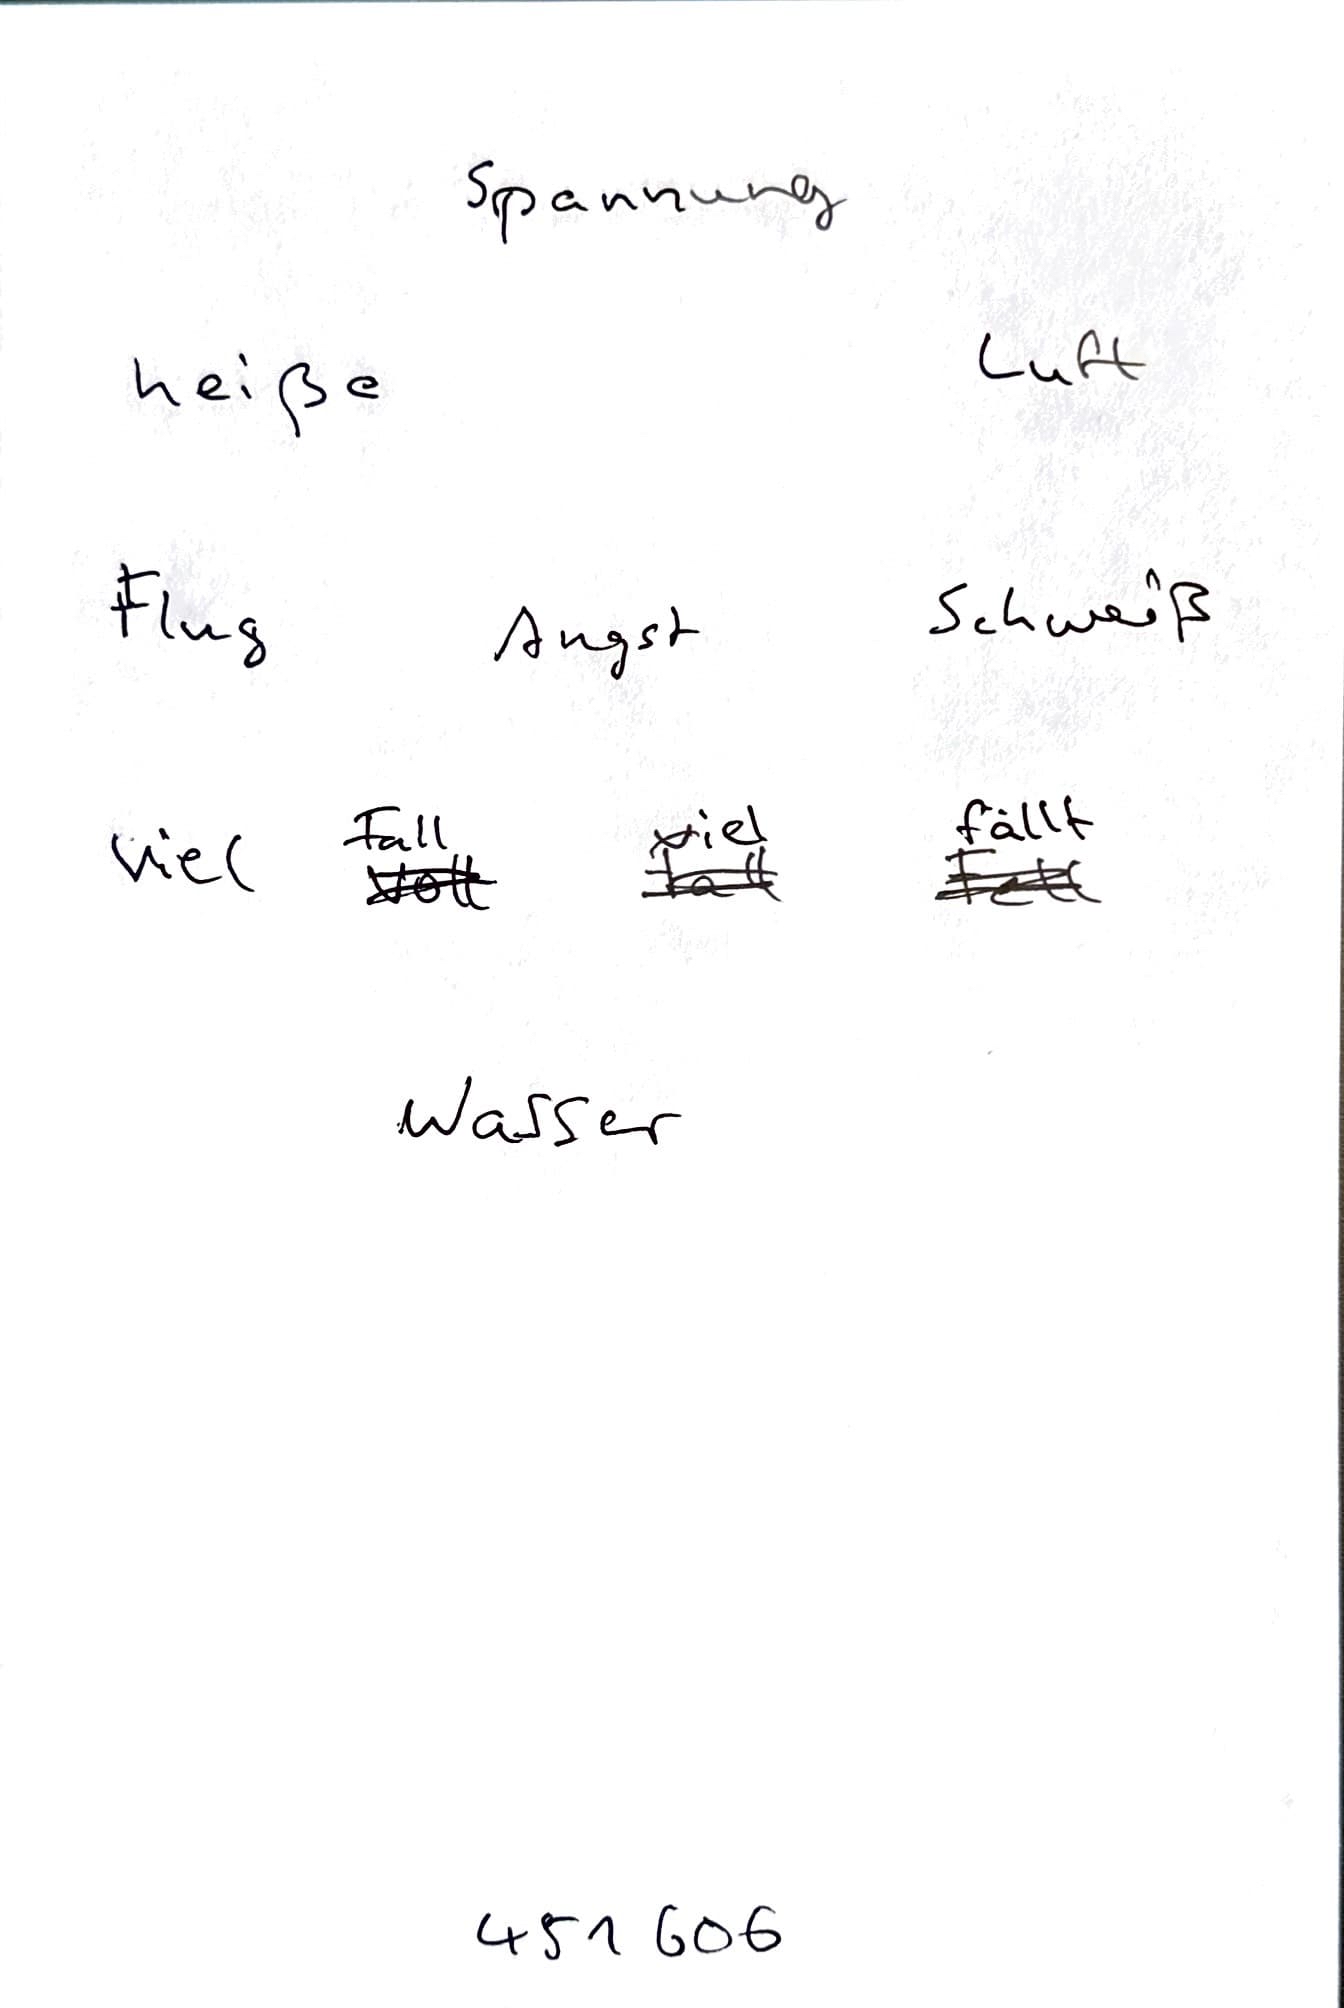 Spannung
heiße Luft
Flug Angst Schweiß
viel Fall viel fällt
Wasser
451 606